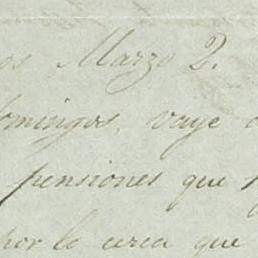 os Marzo 2.
omingos, vaye
pensiones que
por lo cerca que